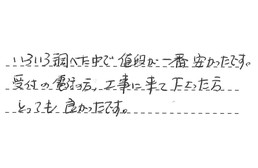 いろいろ調べた中で値段が一番安かったです。
受付の電話の方、工事に来て下さった方
とっても良かったです。